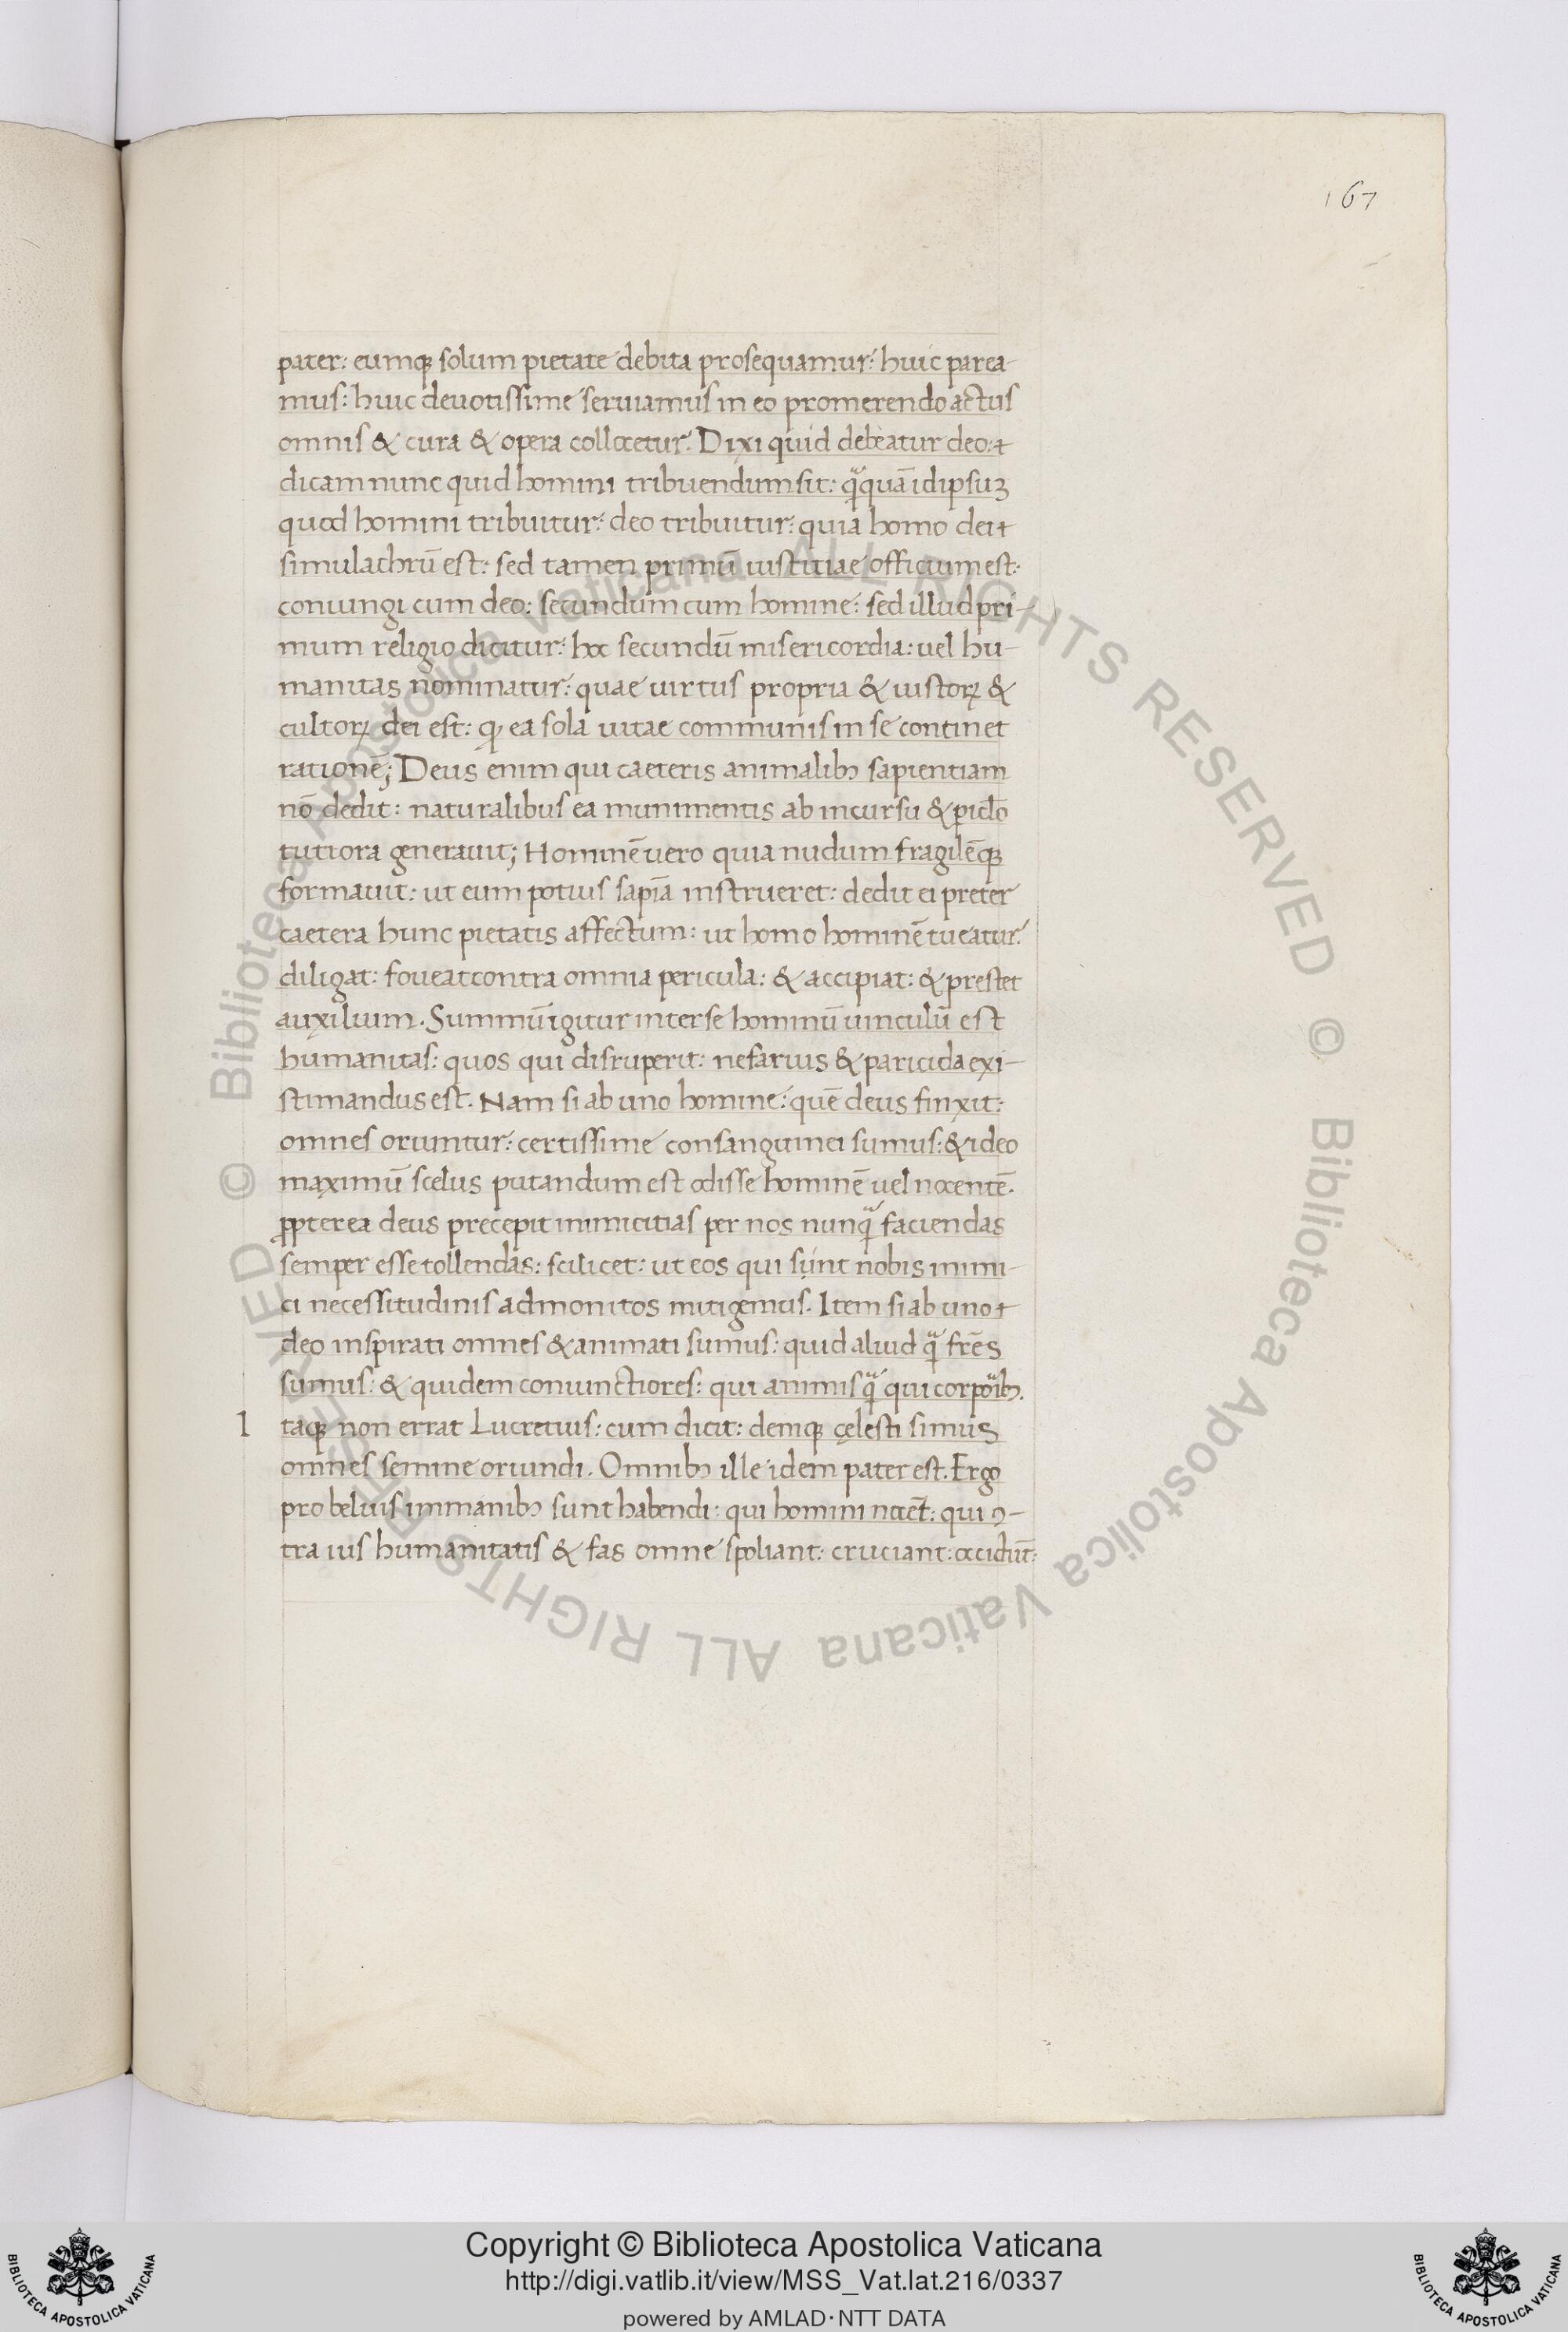 167
pater: eumq; solum pietate debita prosequamur: huic parea-
mus: huic deuotissime seruiamus in eo promerendo actus
omnis & cura & opera collocetur. Dixi quid debeatur deo:
dicam nunc quid homini tribuendum sit: qᷓquā idipsuꝫ
quod homini tribuitur: deo tribuitur: quia homo dei
simulachrū est: sed tamen primū iustitiae officium est:
coniungi cum deo: secundum cum homine: sed illud pri-
mum religio dicitur: hoc secundū misericordia: uel hu-
manitas nominatur: quae uirtus propria & iustoꝝ &
cultoꝝ dei est: ꝙ ea sola uitae communis in se continet
rationē; Deus enim qui caeteris animalibꝫ sapientiam
nō dedit: naturalibus ea munimentis ab incursu & ꝑicl̄o
tutiora generauit; Hominē uero quia nudum fragilēq;
formauit: ut eum potius sapīa instrueret: dedit ei preter
caetera hunc pietatis affectum: ut homo hominē tueatur:
diligat: foueat contra omnia pericula: & accipiat: & prestet
auxilium. Summū igitur inter se hominū uinculū est
humanitas: quos qui disruperit: nefarius & paricida exi-
stimandus est. Nam si ab uno homine: quē deus finxit:
omnes oriuntur: certissime consanguinei sumus: & ideo
maximū scelus putandum est odisse hominē uel nocentē.
ꝓpterea deus precepit inimicitias per nos nunqᷓ faciendas
semper esse tollendas: scilicet: ut eos qui sunt nobis inimi-
ci necessitudinis admonitos mitigemus. Item si ab uno
deo inspirati omnes & animati sumus: quid aliud qᷓ frēs
sumus: & quidem coniunctiores: qui animis qᷓ qui corpoībꝫ.
I taq; non errat Lucretius: cum dicit: deniq; cęlesti simus
omnes semine oriundi. Omnibꝫ ille idem pater est. Ergo
pro beluis immanibꝫ sunt habendi: qui homini nocēt: qui ꝯ-
tra ius humanitatis & fas omne spoliant: cruciant: occidūt:
© Biblioteca Apostolica Vaticana ALL RIGHTS RESERVED © Biblioteca Apostolica Vaticana ALL RIGHTS RESERVED
BIBLIOTECA APOSTOLICA VATICANA
Copyright © Biblioteca Apostolica Vaticana
http://digi.vatlib.it/view/MSS_Vat.lat.216/0337
powered by AMLAD·NTT DATA
BIBLIOTECA APOSTOLICA VATICANA